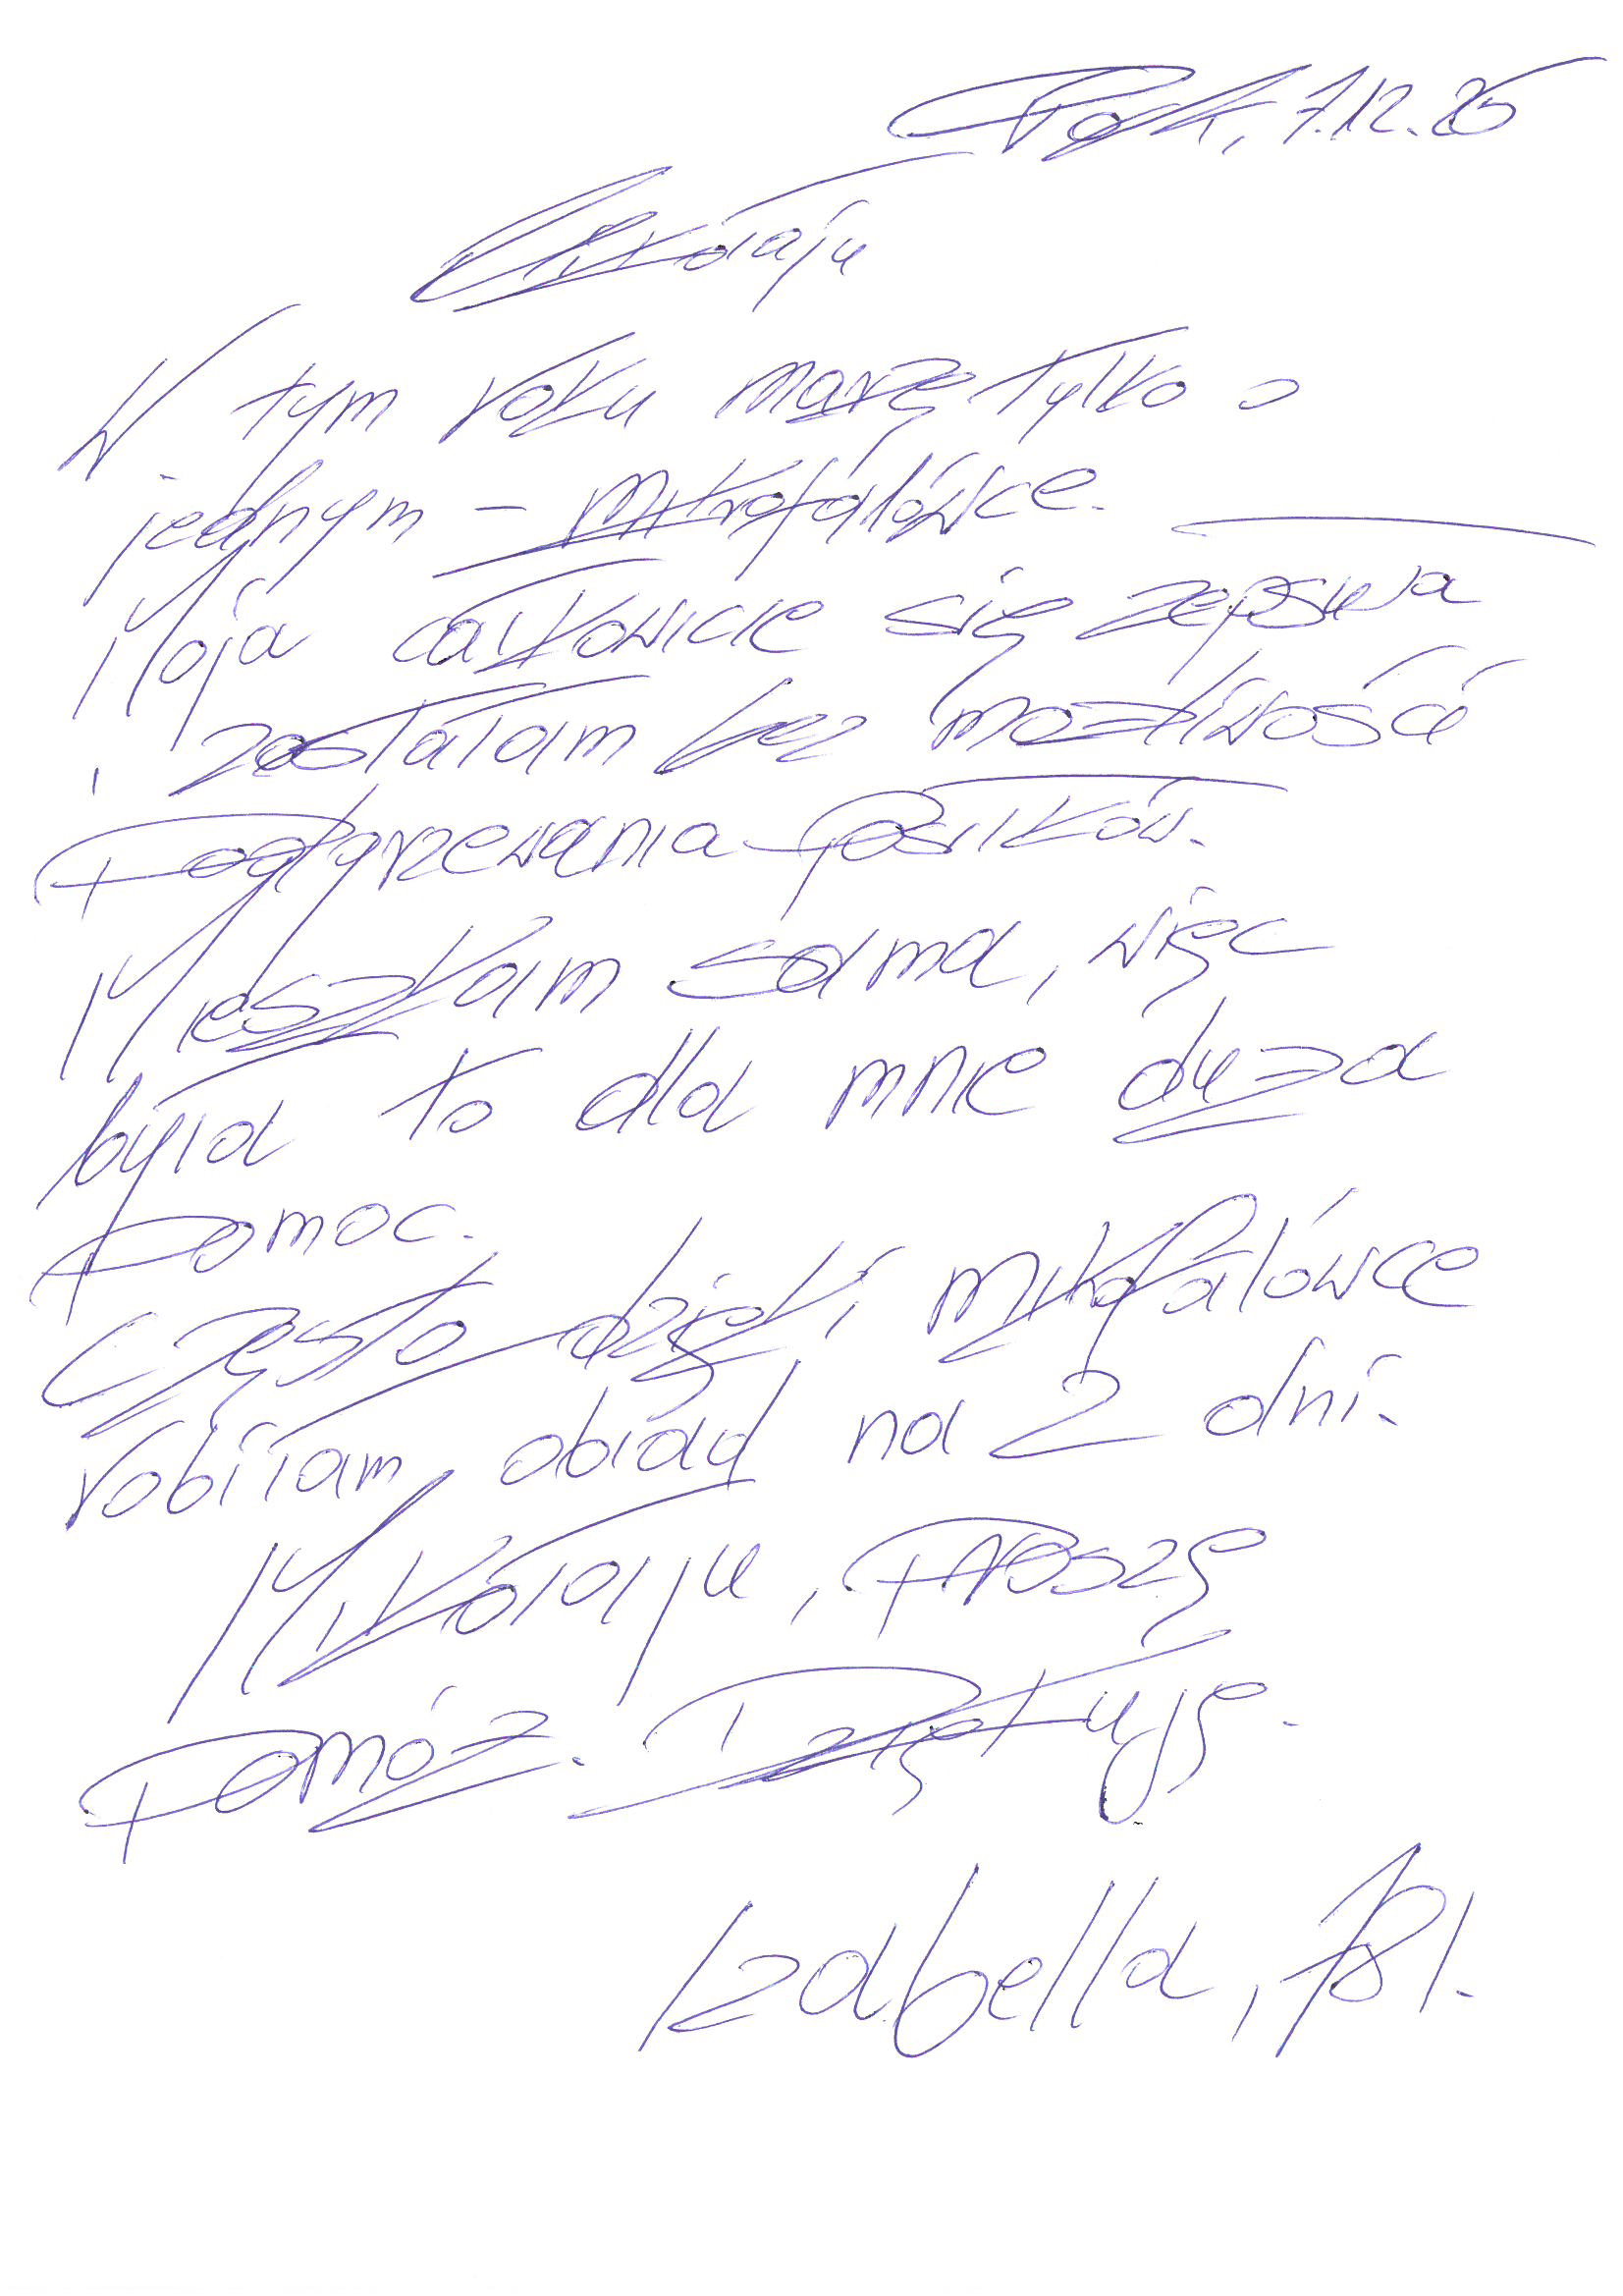 Płock, 7.12.25
Mikołaju
W tym roku marzę tylko o
jednym - mikrofalówce.
Moja całkowicie się zepsuła
i zostałam bez możliwości
podgrzewania posiłków.
Mieszkam sama, więc
była to dla mnie duża
pomoc.
Często dzięki mikrofalówce
robiłam obiad na 2 dni.
Mikołaju, proszę
pomóż. Dziękuję.
Izabella, 78 l.